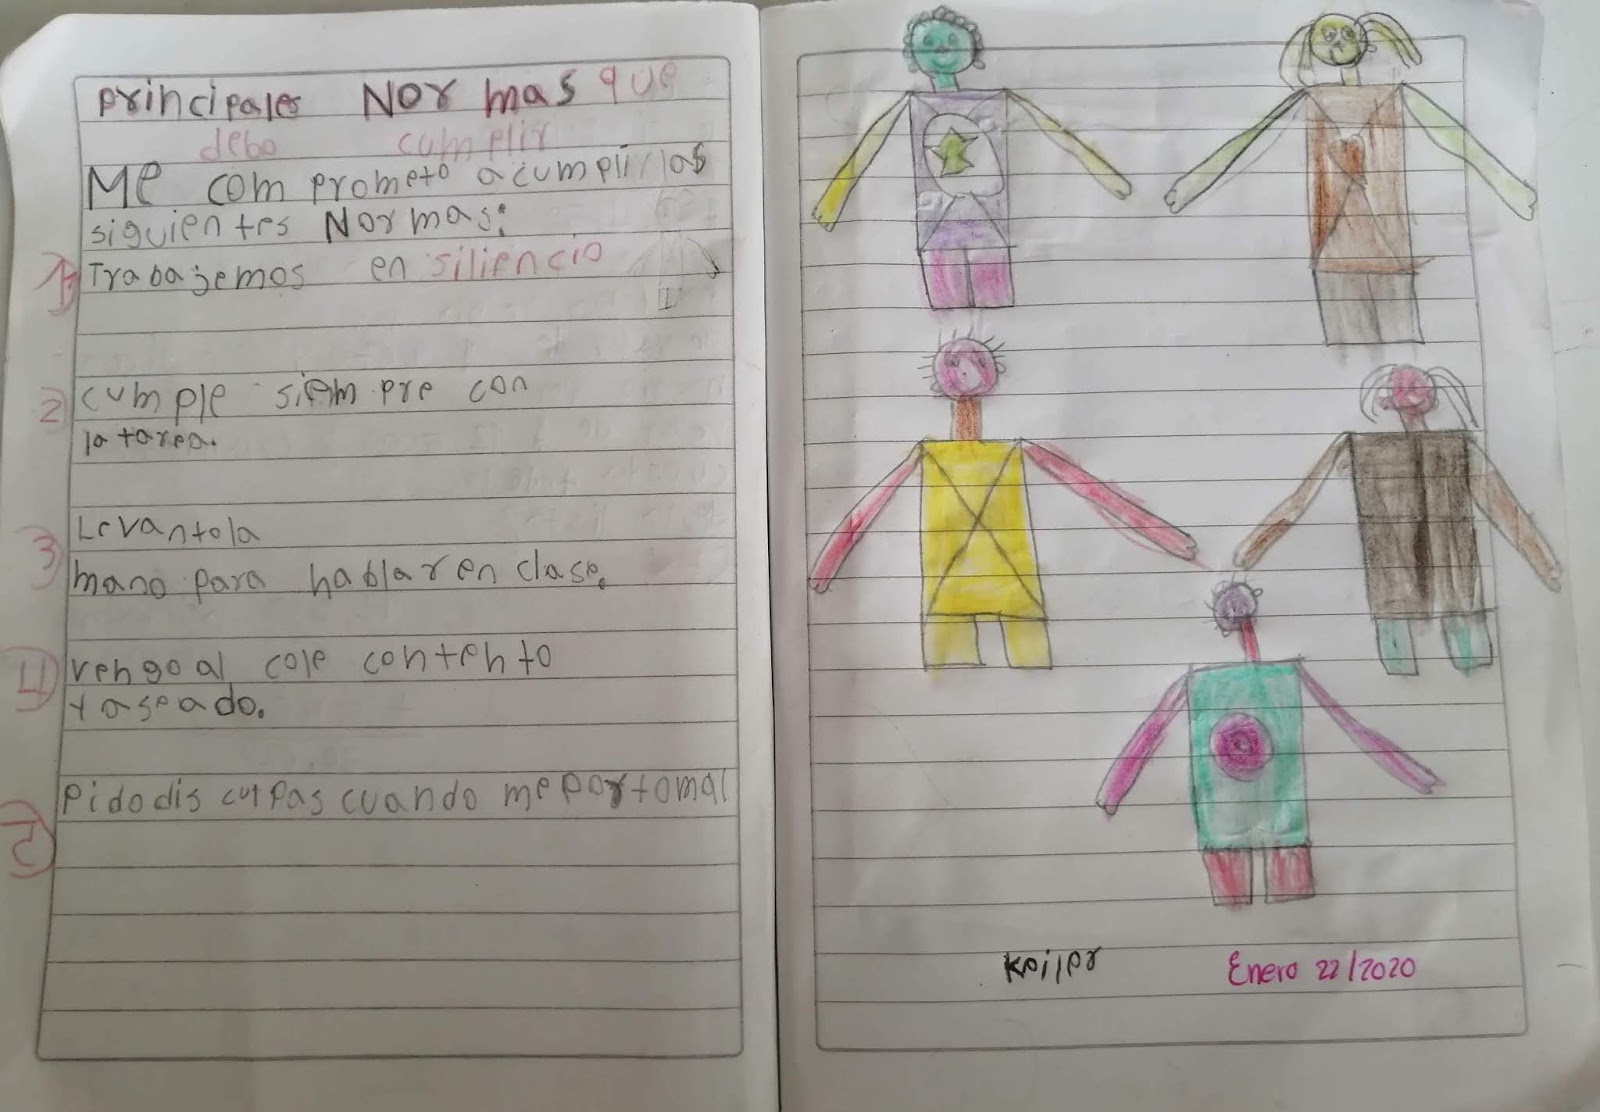 principales Normas que
debo cumplir
Me comprometo a cumplir las
siguientes Normas:
1 Trabajemos en siliencio
2 cumple siempre con
la tarea.
Levanto la
3 mano para hablar en clase.
4 vengo al cole contento
y aseado.
Pido disculpas cuando me porto mal
5
Keiler
Enero 22/2020